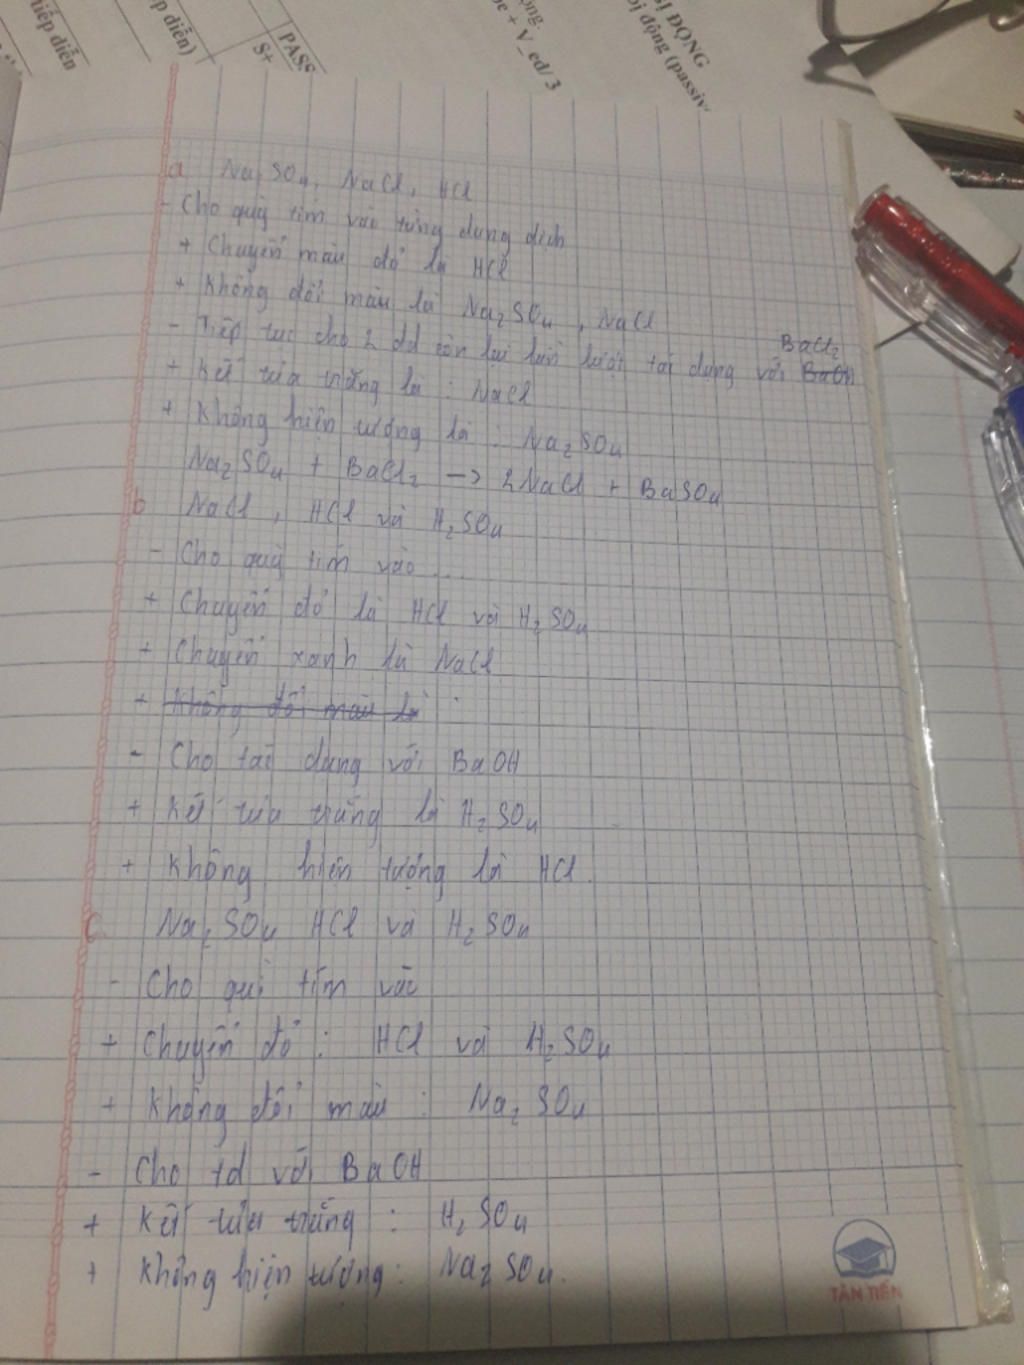 tiếp diễn
p diễn)
S+
PASS
ộng.
be + V_ed/ 3
BỊ ĐỘNG
bị động (passiv
a Na2SO4, NaCl, HCl
- Cho quỳ tím vào từng dung dịch
+ Chuyển màu đỏ là HCl
+ Không đổi màu là Na2SO4, NaCl
- Tiếp tục cho 2 dd còn lại lần lượt tác dụng với BaOH BaCl2
+ Kết tủa trắng là : NaCl
+ Không hiện tượng là : Na2SO4
Na2SO4 + BaCl2 -> 2NaCl + BaSO4
b NaCl, HCl và H2SO4
- Cho quỳ tím vào ...
+ Chuyển đỏ là HCl và H2SO4
+ Chuyển xanh là NaCl
+ Không đổi màu là :
- Cho tác dụng với BaOH
+ Kết tủa trắng là H2SO4
+ Không hiện tượng là HCl.
c Na2SO4 HCl và H2SO4
- Cho quì tím vào
+ Chuyển đỏ : HCl và H2SO4
+ Không đổi màu : Na2SO4
- Cho td với BaOH
+ Kết tủa trắng : H2SO4
+ Không hiện tượng : Na2SO4.
TÂN TIẾN